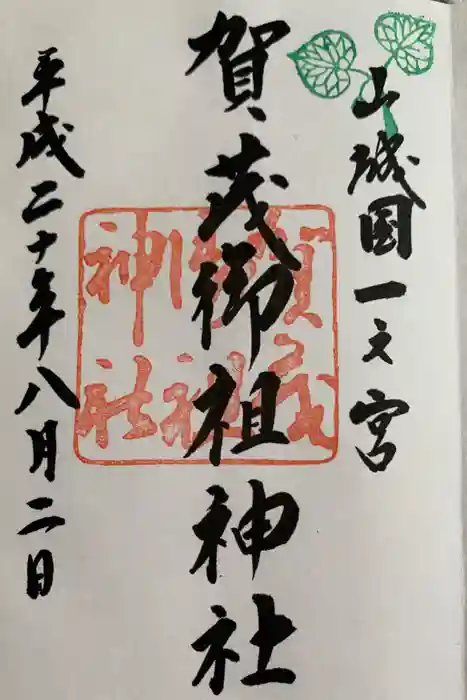 山城国一之宮
賀茂御祖神社
平成二十年八月二日
賀茂
御祖
神社